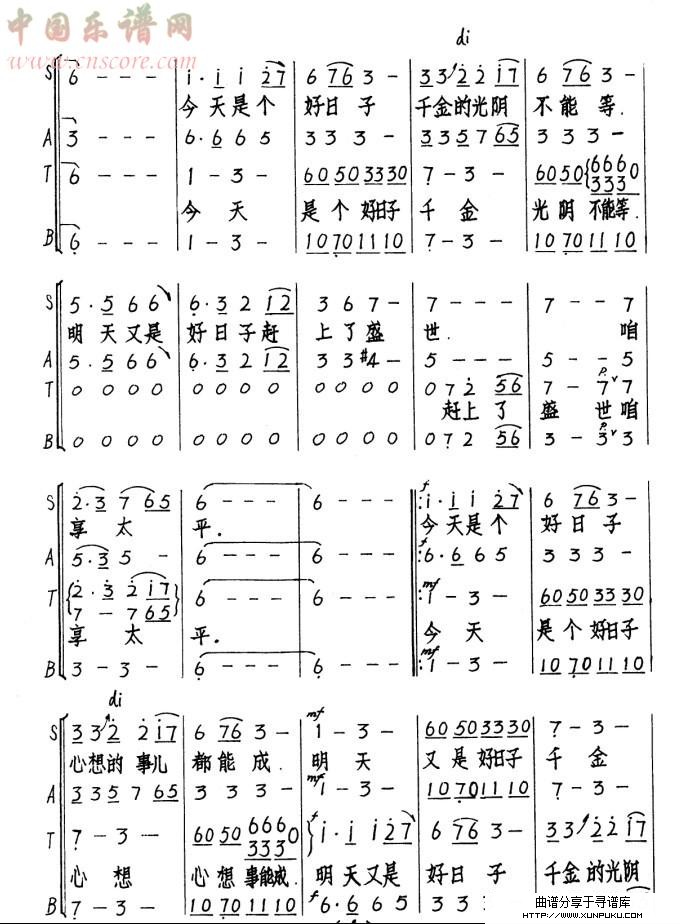 中国乐谱网
www.cnscore.com
di
S 6 - - - i· i i 2 7 6 7 6 3 - 3 3 2 2 i 7 6 7 6 3 -
今天是个 好日子 千金的光阴 不能等.
A 3 - - - 6· 6 6 5 3 3 3 - 3 3 5 7 6 5 3 3 3 -
T 6 - - - 1 - 3 - 6 0 5 0 3 3 3 0 7 - 3 - 6 0 5 0 6 6 6 0
3 3 3
今天 是个好日子 千金 光阴不能等.
B 6 - - - 1 - 3 - 1 0 7 0 1 1 1 0 7 - 3 - 1 0 7 0 1 1 1 0
S 5· 5 6 6 6· 3 2 1 2 3 6 7 - 7 - - - 7 - - 7
明天又是 好日子赶 上了盛 世. 咱
A 5· 5 6 6 6· 3 2 1 2 3 3 #4 - 5 - - - 5 - - 5
T 0 0 0 0 0 0 0 0 0 0 0 0 0 7 2 5 6 7 - 7 7
赶上了 盛世咱
B 0 0 0 0 0 0 0 0 0 0 0 0 0 7 2 5 6 3 - 3 3
S 2· 3 7 6 5 6 - - - 6 - - - f i· i i 2 7 6 7 6 3 -
享太 平. 今天是个 好日子
A 5· 3 5 - 6 - - - 6 - - - f 6· 6 6 5 3 3 3 -
T 2· 3 2 i 7 6 - - - 6 - - - mf 1 - 3 - 6 0 5 0 3 3 3 0
7 - 7 6 5
享太 平. 今天 是个好日子
B 3 - 3 - 6 - - - 6 - - - mf 1 - 3 - 1 0 7 0 1 1 1 0
di
S 3 3 2 2 i 7 6 7 6 3 - mf 1 - 3 - 6 0 5 0 3 3 3 0 7 - 3 -
心想的事儿 都能成. 明天 又是好日子 千金
A 3 3 5 7 6 5 3 3 3 - mf 1 - 3 - 1 0 7 0 1 1 1 0 7 - 3 -
T 7 - 3 - 6 0 5 0 6 6 6 0 f i· i i 2 7 6 7 6 3 - 3 3 2 2 i 7
3 3 3
心想 心想事能成. 明天又是 好日子 千金的光阴
B 7 - 3 - 1 0 7 0 1 1 1 0 f 6· 6 6 5 3 3 3 -
曲谱分享于寻谱库
WWW.XUNPUKU.COM